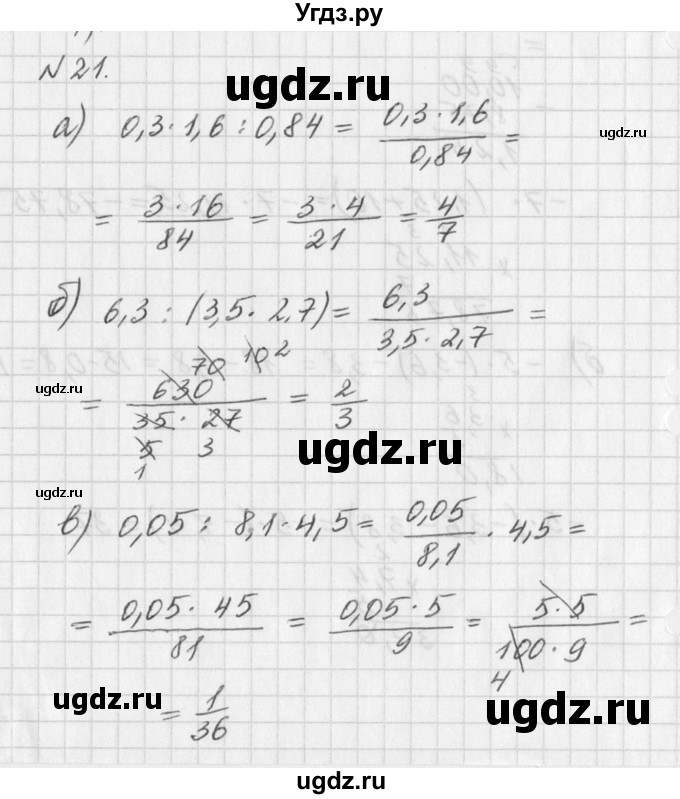 Угдз.ру
№21.
ugdz.ru
а) 0,3·1,6:0,84 = 0,3·1,6/0,84 =
ugdz.ru
= 3·16/84 = 3·4/21 = 4/7
б) 6,3 : (3,5·2,7) = 6,3/3,5·2,7 =
70 10 2
ugdz.ru
= 630/35·27 = 2/3
5 3
1
ugdz.ru
ugdz.ru
в) 0,05 : 8,1·4,5 = 0,05/8,1 · 4,5 =
= 0,05·45/81 = 0,05·5/9 = 5·5/100·9 =
4
ugdz.ru
ugdz.ru
= 1/36
ugdz.ru